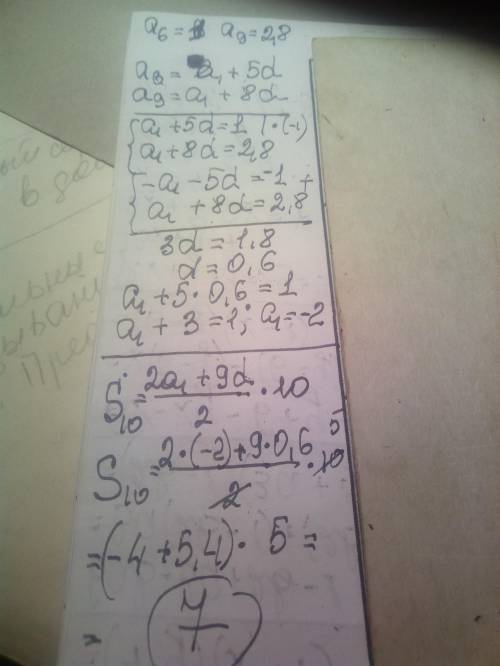 a₆ = 1 a₉ = 2,8
a₉ = a₁ + 5d
a₉ = a₁ + 8d
{a₁ + 5d = 1 | · (-1)
a₁ + 8d = 2,8
{-a₁ - 5d = -1 +
a₁ + 8d = 2,8
3d = 1,8
d = 0,6
a₁ + 5 · 0,6 = 1
a₁ + 3 = 1; a₁ = -2
S₁₀ = (2a₁ + 9d)/2 · 10
S₁₀ = (2 · (-2) + 9 · 0,6)/2 · 10 5
= (-4 + 5,4) · 5 =
= 7